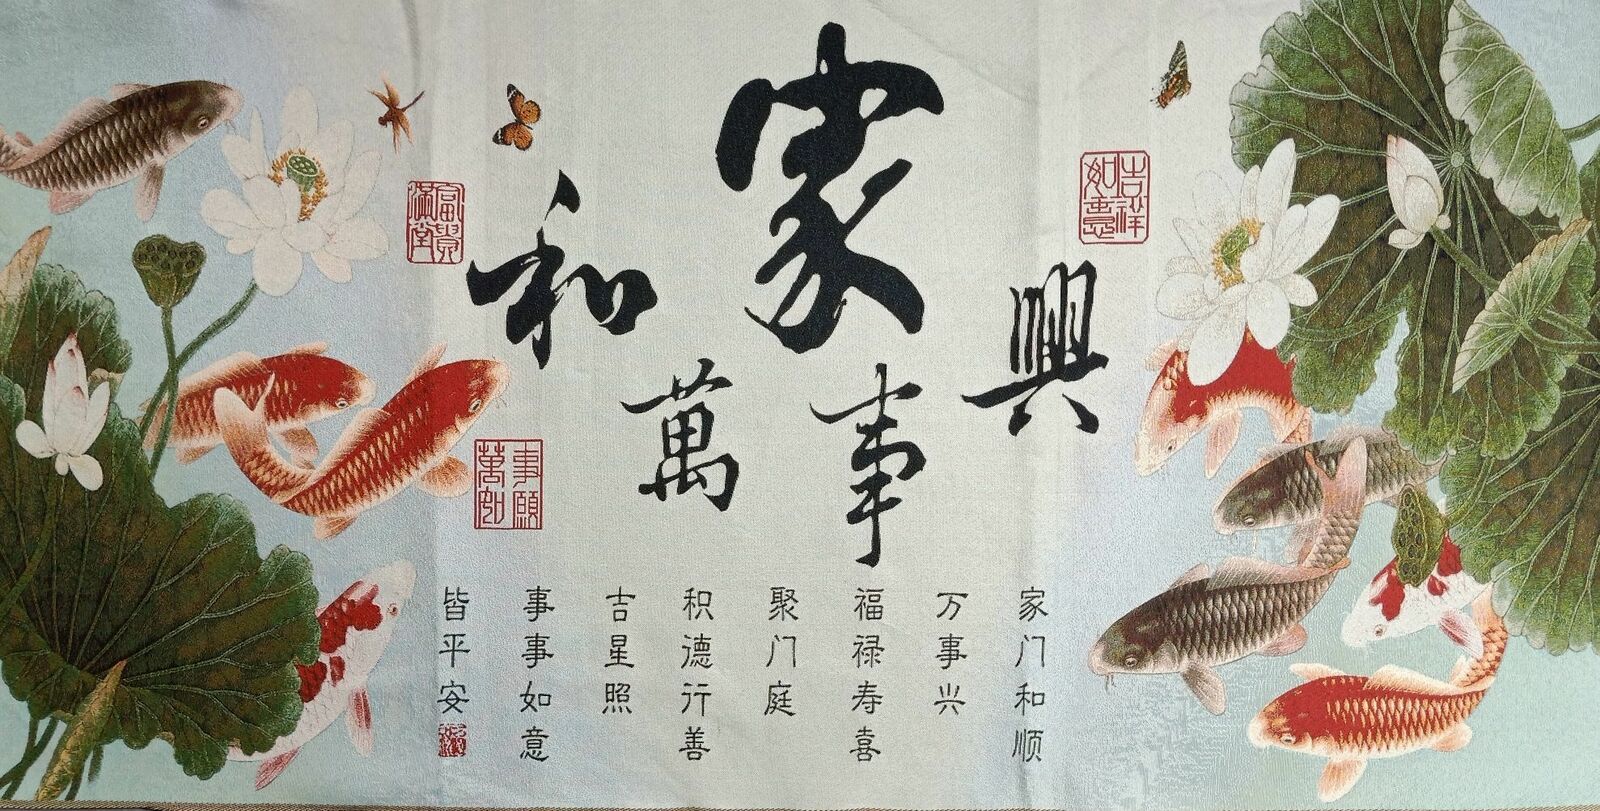 家和萬事興
吉祥如意
富貴滿堂
事願萬如
家门和顺
万事兴
福禄寿喜
聚门庭
积德行善
吉星照
事事如意
皆平安